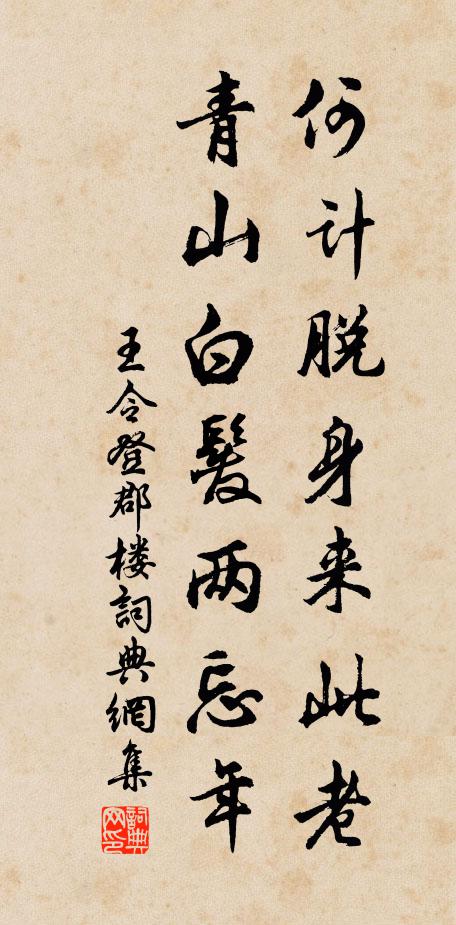 何计脱身来此老
青山白髮两忘年
王令登郡楼詞典網集
詞典网印